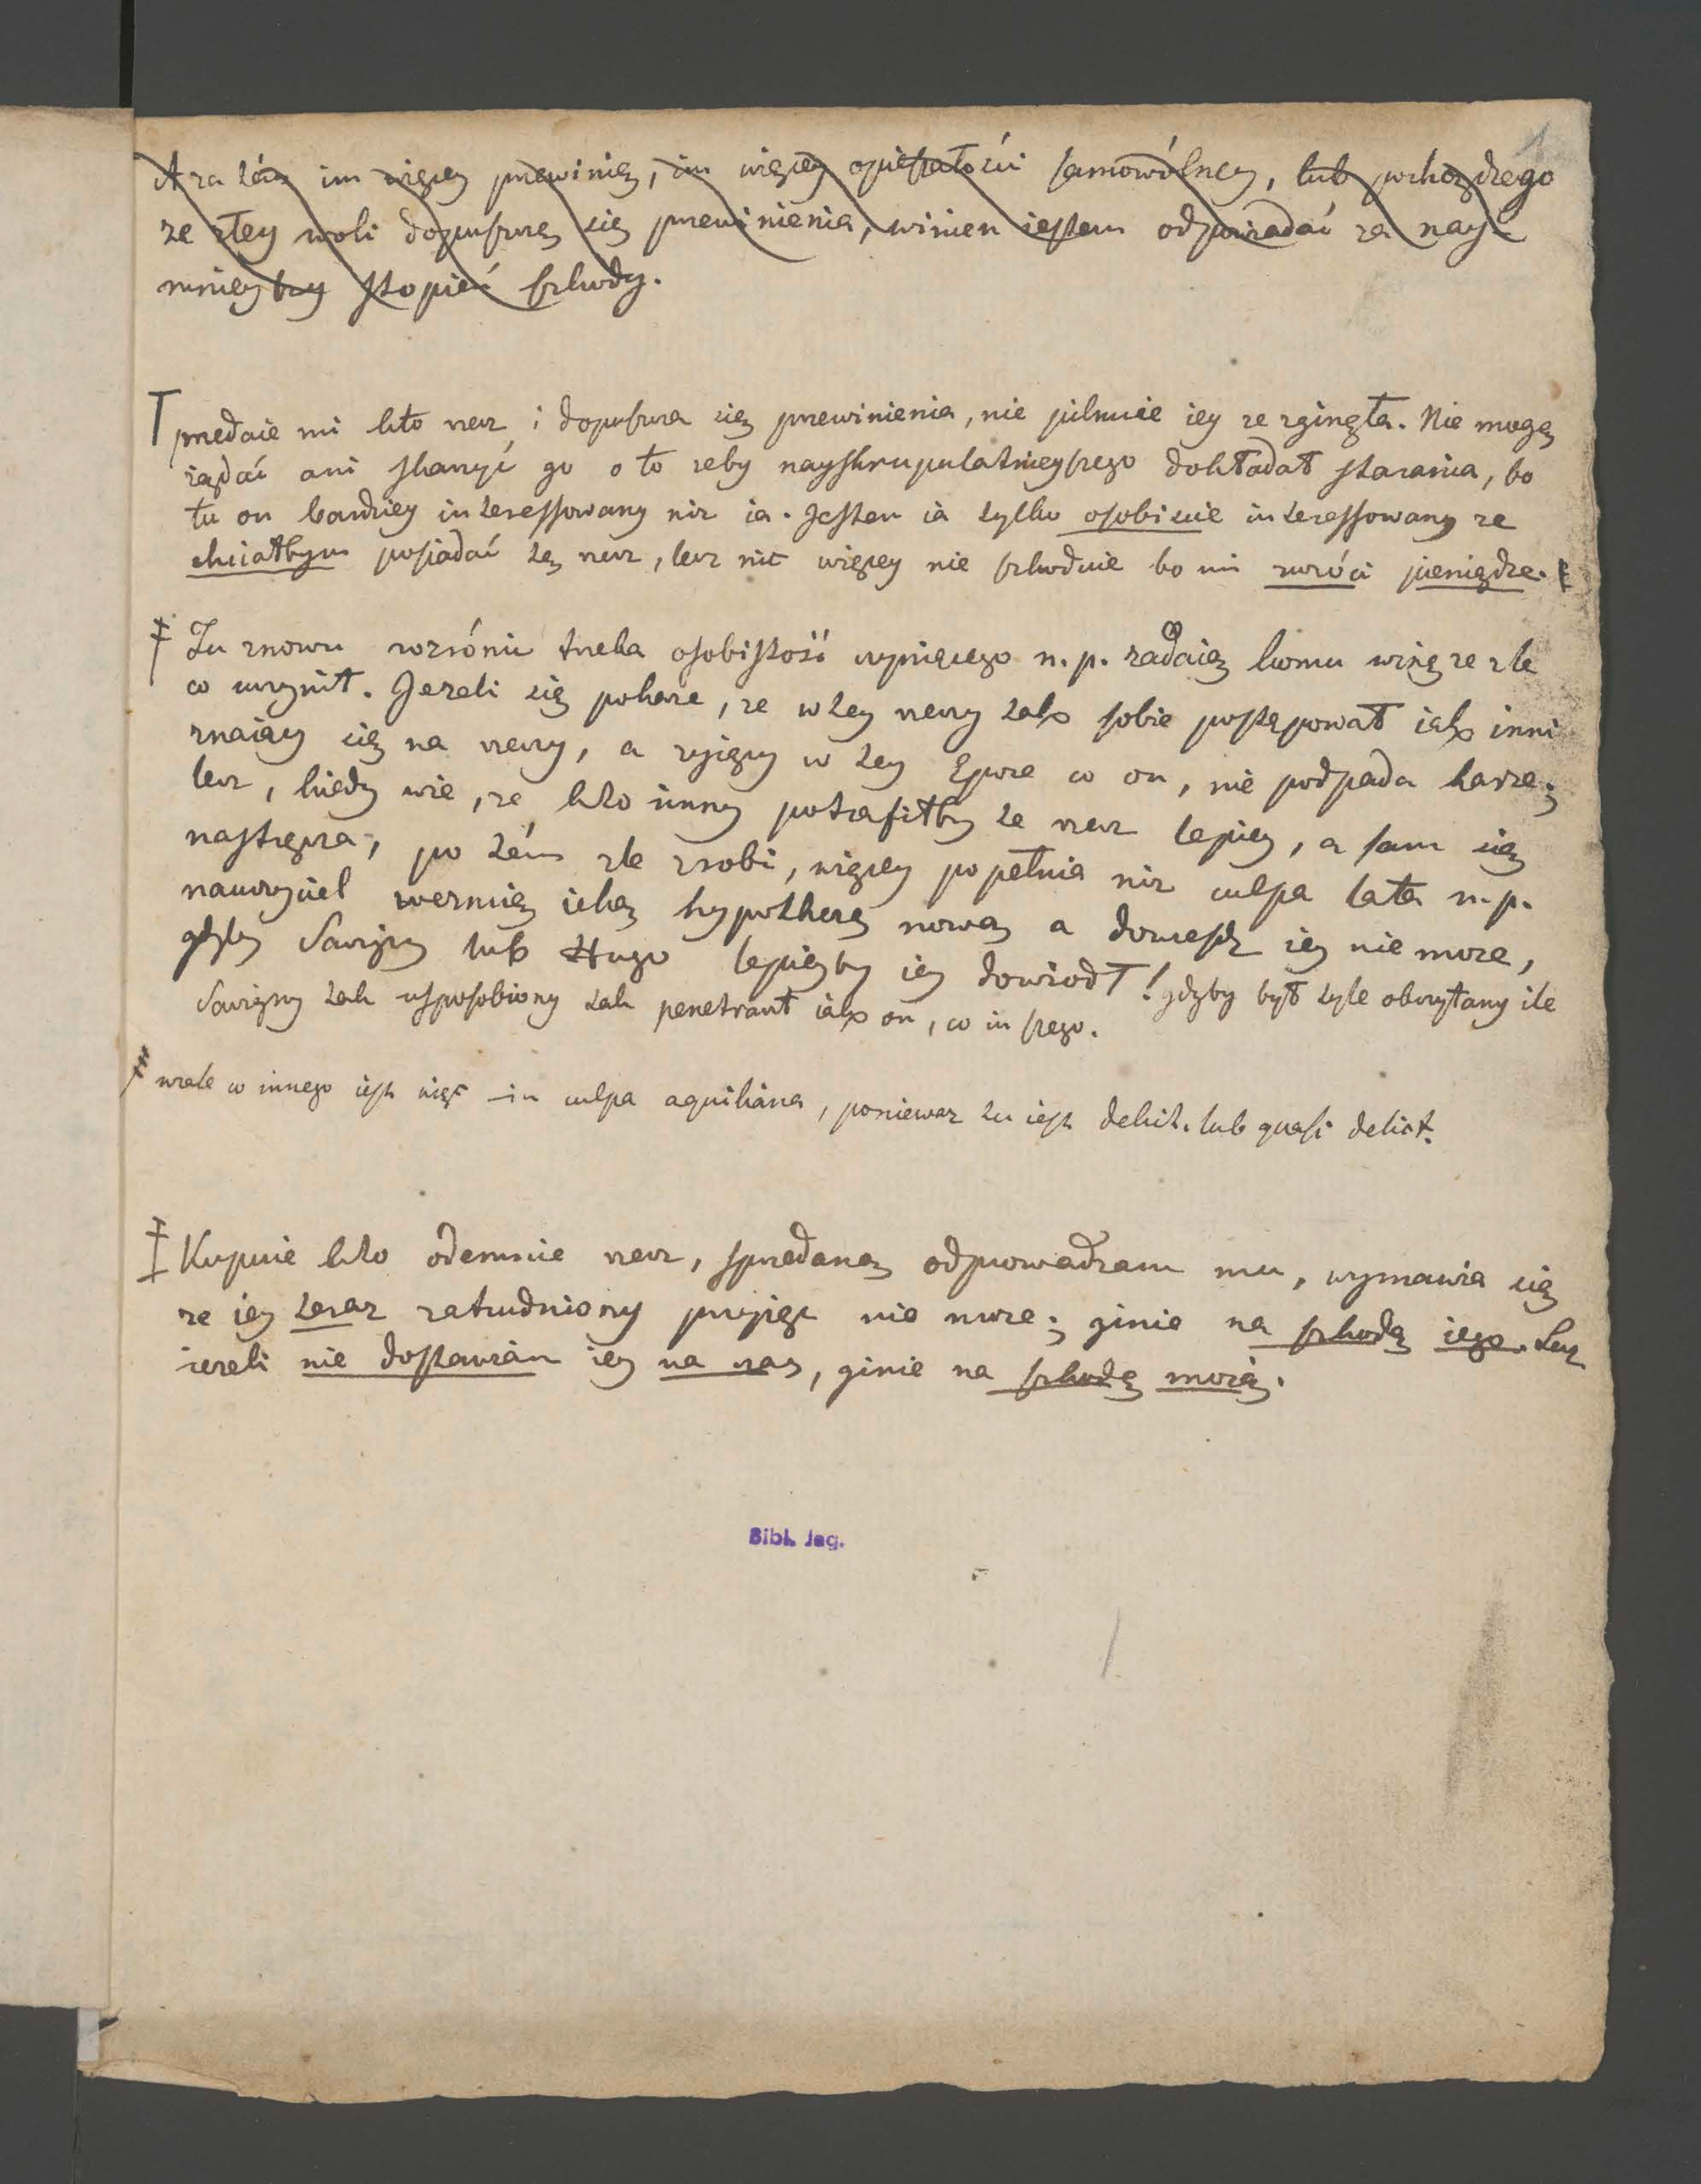 A za tém im więcey przewinię, im więcey opieszałości samowólney, lub pochodzęgo
ze złey woli dopuszczę się przewinienia, winien iestem odpowiadać za nay-
mnieyszy stopień szkody.
przedaie mi kto rzecz, i dopuszcza się przewinienia, nie pilnuie iey ze zginęła. Nie mogę
rządać ani skarzyć go o to zeby nayskrupulatnieyszego dokładał starania, bo
tu on bardziey interessowany niz ia. Jestem ia tylko osobiscie interessowany ze
chciałbym posiadać tę rzecz, lecz nic więcey nie szkoduie bo mi zwróci pieniądze.
Tu znowu rozrónić trzeba osobistość czyniącego n. p. zadaię komu winę ze zle
co uczynił. Jezeli się pokaze, ze w tey rzeczy tak sobie postępował iak inni
znaiący się na rzeczy, a zyiący w tey Epoce co on, nie podpada karze;
lecz, kiedy wie, ze kto inny potrafiłby te rzecz lepiey, a sam się
nastręcza, po tém zle zrobi, więcey popełnia niz culpa lata n. p.
nauczyciel weznie iaką hypothezę nową a dowieść iey nie moze,
gdyby Savigny lub Hugo lepieyby iey dowiodł! gdyby był tyle oczytany ile
Savigny tak usposobiony tak penetrant iak on, co in szego.
wcale co innego iest więc in culpa aquiliana, poniewaz tu iest delict. lub quasi delict.
Kupuie kto odemnie rzecz, sprzedaną odprowadzam mu, wymawia się
ze iey teraz zatrudniony przyięć nie moze; ginie na szkodę iego. Lecz
iezeli nie dostawiam iey na czas, ginie na szkodę moią.
Bibl. Jag.